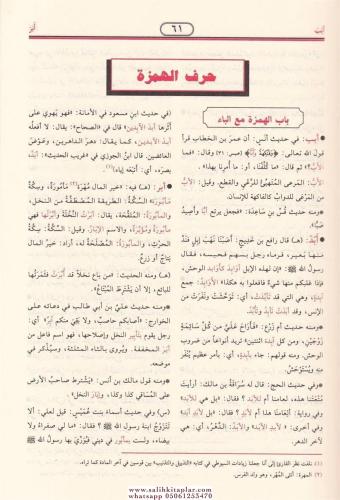 أبب
٦١
أبر
حرف الهمزة
باب الهمزة مع الباء
• أبب: في حديث أنس: أن عمر بن الخطاب قرأ
قول الله تعالى: ﴿وَفَاكِهَةً وَأَبًّا﴾ [عبس: ٣١] وقال: «فما
الأبُّ؟» ثم قال: «ما كُلِّفنا، أو: ما أُمرنا بهذا».
الأبُّ: المرعى المتهيئ للرعي والقطع. وقيل: الأبُّ
من المرعى للدواب كالفاكهة للإنسان.
• ومنه حديث قُسّ بن ساعدة: «فجعل يرتع أبًّا وأصيدُ
ضبًّا».
• أبد: هـ) قال رافع بن خديج: أصبنا نهب إبل فندَّ
منها بعير، فرماه رجل بسهم فحبسه، فقال
رسول الله ﷺ: «إن لهذه الإبل أوابد كأوابد الوحش،
فإذا غلبكم منها شيءٌ فافعلوا به هكذا» الأوابد: جمع
آبدة، وهي التي قد تأبَّدت، أي: توحشت ونفرت من
الإنس. وقد أَبَدت تأبِد وتأبُد.
• ومنه حديث أم زرع: «فأراح عليَّ من كل سائمةٍ
زوجين، ومن كل آبدةٍ اثنتين» تريد أنواعاً من ضروب
الوحش. ومنه قولهم: جاء بآبدة، أي: بأمر عظيم يُنفر
منه ويُستوحش.
• وفي حديث الحج: قال له سُراقة بن مالك: أرأيت
مُتعتنا هذه، لعامنا أم للأبد؟ فقال: «بل هي للأبد»
وفي رواية: ألعامنا هذا أم لأبد؟ فقال: «بل لأبد أبد»
وفي أخرى: «لأبد الأبد» والأبد: الدهر، أي: هي
لآخر الدهر.
(في حديث ابن مسعود في الأمانة: «فهو يهوي على
أثرها أبد الآبدين» قال في «الصحاح»: يقال: لا أفعله
أبد الآبدين، كما يقال: دهر الداهرين، وعوض
العائضين. قال ابن الجوزي في «غريب الحديث»: أبَدَّه
بصره، أي: أتبعه إياه)
• أبر: (هـ) فيه: «خير المال مُهرة مأمورة، وسِكَّة
مأبورة» السِّكَّة: الطريقة المصطفَّة من النخل،
والمأبورة: الملقَّحة، يقال: أبَرْتُ النخلة وأبَّرْتُها فهي
مأبورة ومُؤبَّرة، والاسم الإبار. وقيل: السِّكَّة: سِكَّة
الحرث، والمأبورة: المُصلَحة له، أراد: خير المال
نتاج أو زرع.
• (هـ) ومنه الحديث: «من باع نخلاً قد أُبِّرت فثمرتُها
للبائع، إلا أن يشترط المبتاع».
• ومنه حديث علي بن أبي طالب في دعائه على
الخوارج: «أصابكم حاصبٌ، ولا بقي منكم آبر» أي:
رجل يقوم بتأبير النخل وإصلاحها، فهو اسم فاعل من
أبر المخففة. ويُروى بالثاء المثلثة، وسيُذكر في
موضعه.
• ومنه قول مالك بن أنس: «يشترط صاحب الأرض
على المُساقي كذا وكذا، وإبار النخل»
(س) وفي حديث أسماء بنت عُميس: قيل لعلي: ألا
تتزوج ابنة رسول الله ﷺ؟ فقال: «ما لي صفراءُ ولا
بيضاء، ولست بمأبور في ديني فيُورِّي بها رسول الله ﷺ
www.salihkitaplar.com
whatsapp 05061253470